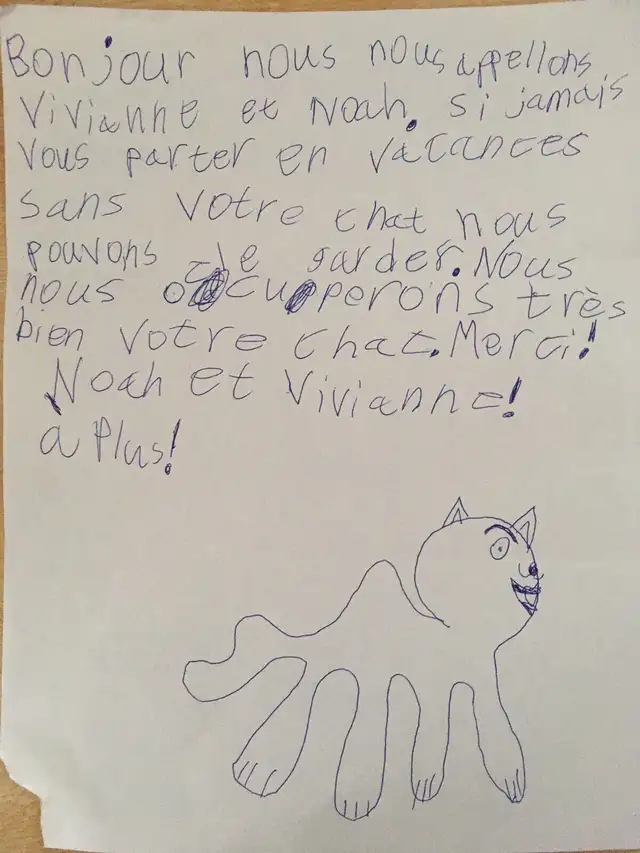 Bonjour nous nous appellons
Vivianne et Noah. si jamais
Vous parter en vacances
sans votre chat nous
pouvons le garder. Nous
nous occupperons très
bien votre chat. Merci!
Noah et Vivianne!
a Plus!